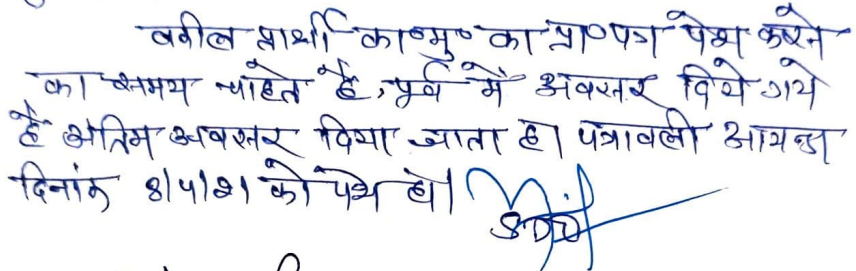 वकील प्रार्थी का०मु० का प्रा०पत्र पेश करने
का समय चाहते हैं, पूर्व में अवसर दिये गये
हैं अंतिम अवसर दिया जाता है। पत्रावली आयन्दा
दिनांक 8/4/21 को पेश हो।
SDO